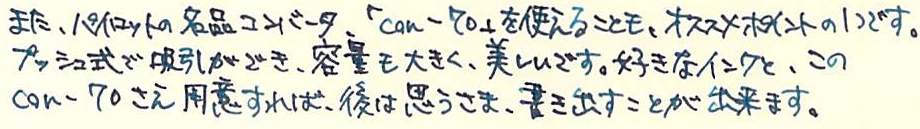 また、パイロットの名品コンバータ、「con-70」を使えることも、オススメポイントの1つです。
プッシュ式で吸引ができ、容量も大きく、美しいです。好きなインクと、この
con-70さえ用意すれば、後は思うさま、書き出すことが出来ます。